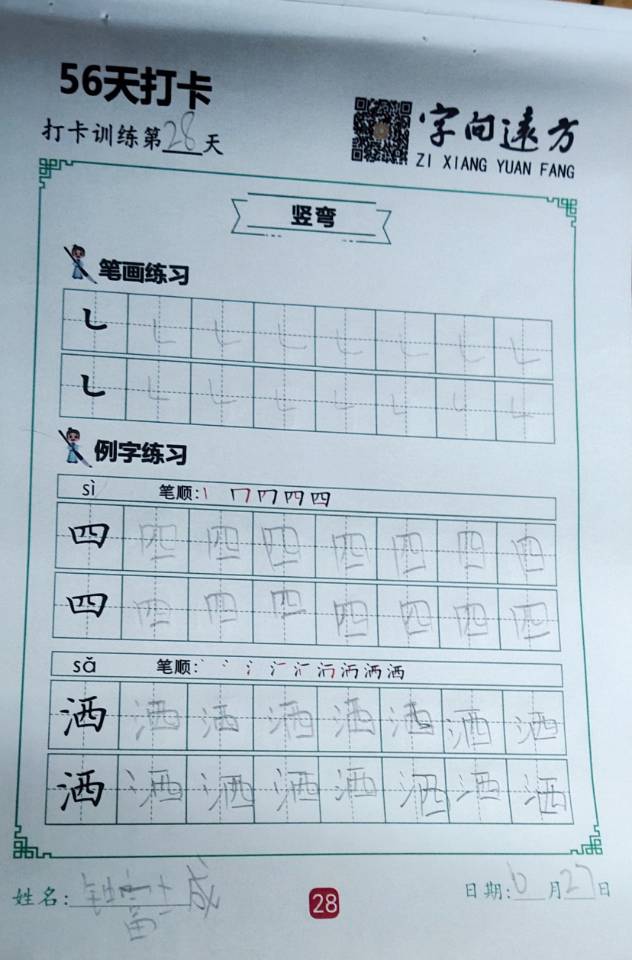 56天打卡
打卡训练第28天
字向远方
ZI XIANG YUAN FANG
竖弯
笔画练习
㇄㇄㇄㇄㇄㇄㇄㇄
㇄㇄㇄㇄㇄㇄㇄㇄
例字练习
sì 笔顺:
四四四四四四四四
四四四四四四四四
sǎ 笔顺:
洒洒洒洒洒洒洒洒
洒洒洒洒洒洒洒洒
姓名:
28
日期:6月27日